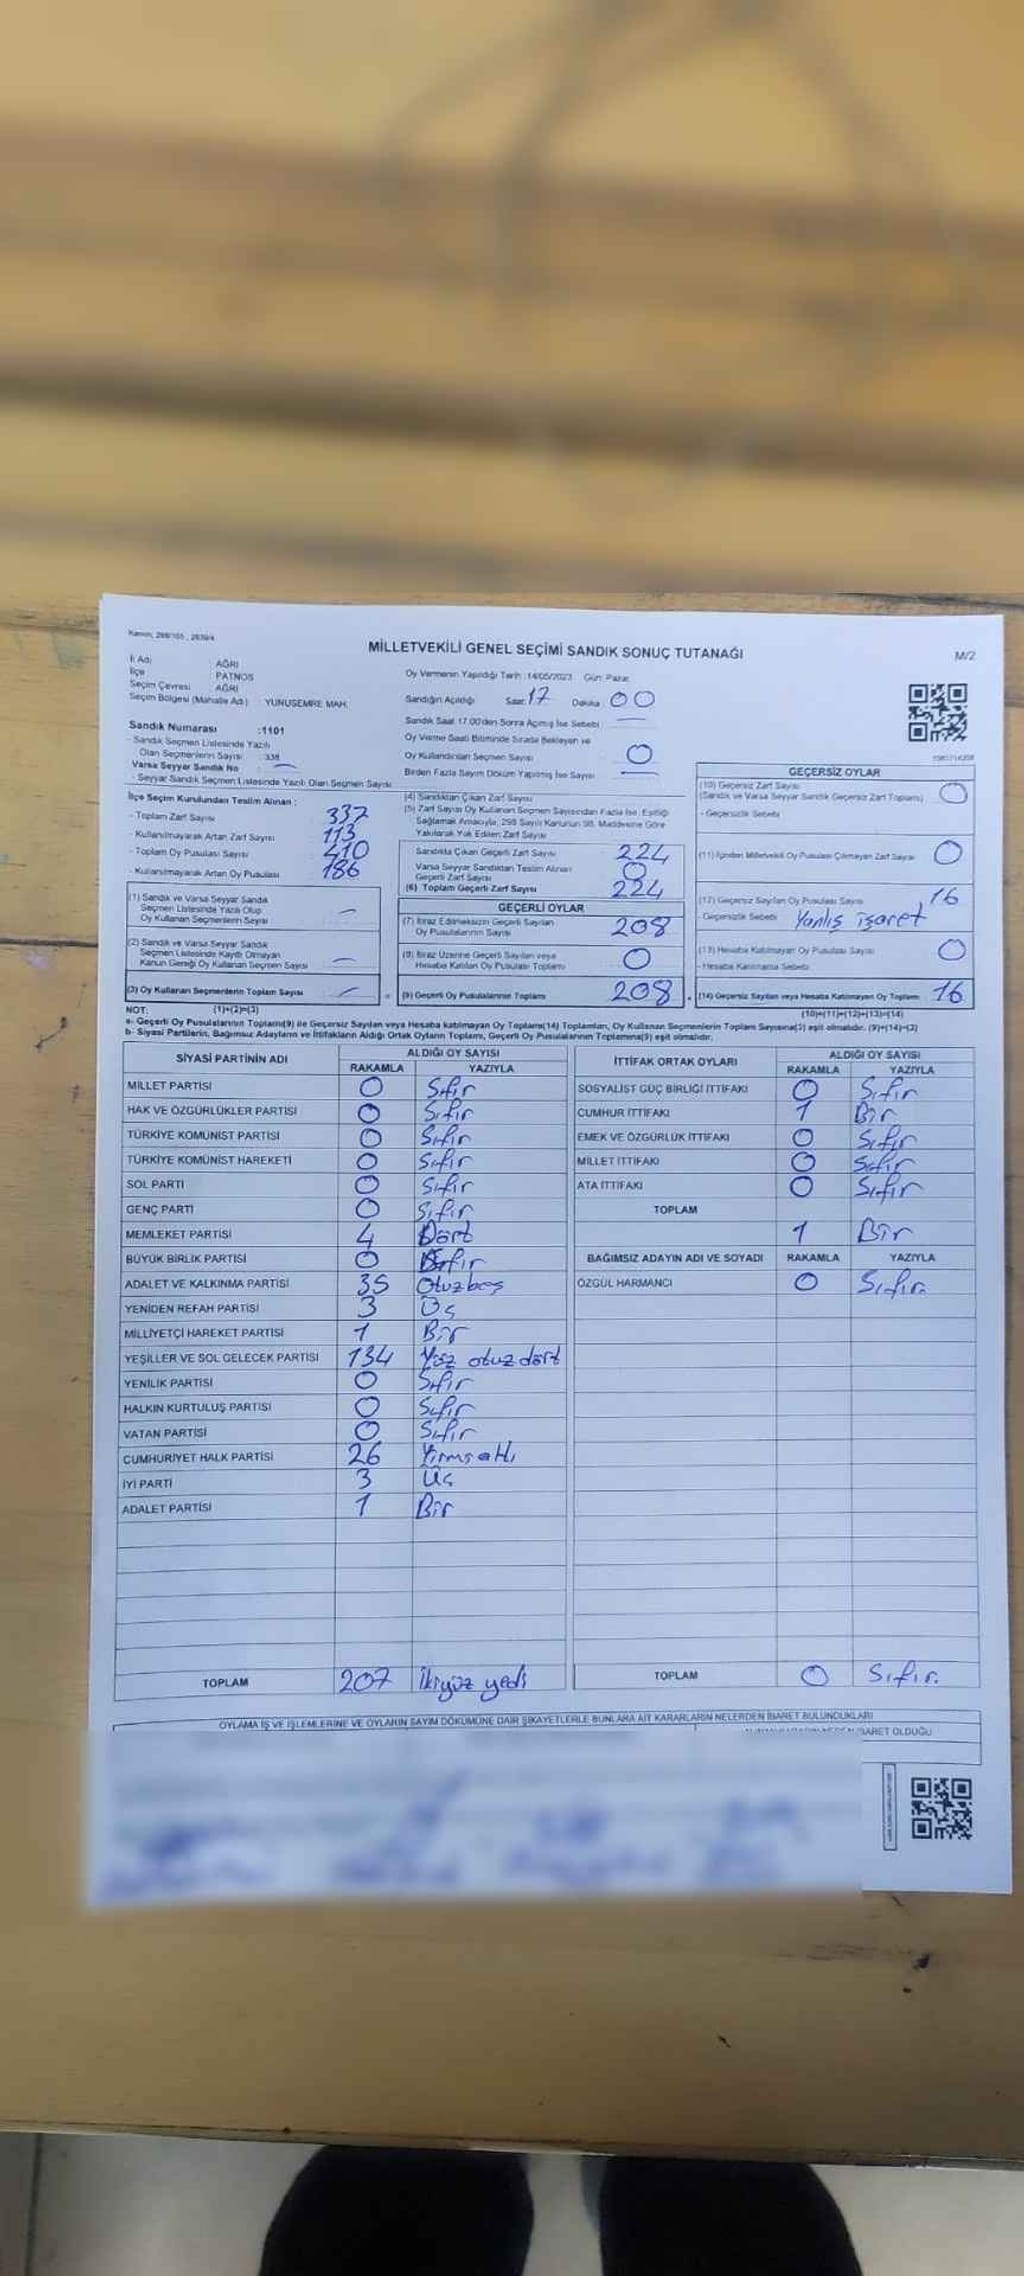 Kanun; 298/105 , 2839/4
MİLLETVEKİLİ GENEL SEÇİMİ SANDIK SONUÇ TUTANAĞI
M/2
İl Adı : AĞRI
İlçe : PATNOS
Seçim Çevresi : AĞRI
Seçim Bölgesi (Mahalle Adı) : YUNUSEMRE MAH.
Oy Vermenin Yapıldığı Tarih :14/05/2023 Gün: Pazar
Sandığın Açıldığı Saat: 17 Dakika : 00
Sandık Saat 17:00'den Sonra Açmış İse Sebebi : —
Oy Verme Saati Bitiminde Sırada Bekleyen ve
Oy Kullandırılan Seçmen Sayısı : 0
Birden Fazla Sayım Döküm Yapılmış İse Sayısı : —
Sandık Numarası :1101
- Sandık Seçmen Listesinde Yazılı
Olan Seçmenlerin Sayısı : 338
Varsa Seyyar Sandık No : —
- Seyyar Sandık Seçmen Listesinde Yazılı Olan Seçmen Sayısı
İlçe Seçim Kurulundan Teslim Alınan :
- Toplam Zarf Sayısı : 337
- Kullanılmayarak Artan Zarf Sayısı : 113
- Toplam Oy Pusulası Sayısı : 410
- Kullanılmayarak Artan Oy Pusulası : 186
(1) Sandık ve Varsa Seyyar Sandık
Seçmen Listesinde Yazılı Olup
Oy Kullanan Seçmenlerin Sayısı —
(2) Sandık ve Varsa Seyyar Sandık
Seçmen Listesinde Kayıtlı Olmayan
Kanun Gereği Oy Kullanan Seçmen Sayısı —
(3) Oy Kullanan Seçmenlerin Toplam Sayısı —
(4) Sandıktan Çıkan Zarf Sayısı
(5) Zarf Sayısı Oy Kullanan Seçmen Sayısından Fazla İse, Eşitliği
Sağlamak Amacıyla, 298 Sayılı Kanunun 98. Maddesine Göre
Yakılarak Yok Edilen Zarf Sayısı
Sandıkta Çıkan Geçerli Zarf Sayısı 224
Varsa Seyyar Sandıktan Teslim Alınan
Geçerli Zarf Sayısı 0
(6) Toplam Geçerli Zarf Sayısı 224
GEÇERLİ OYLAR
(7) İtiraz Edilmeksizin Geçerli Sayılan
Oy Pusulalarının Sayısı 208
(8) İtiraz Üzerine Geçerli Sayılan veya
Hesaba Katılan Oy Pusulası Toplamı 0
(9) Geçerli Oy Pusulalarının Toplamı 208
GEÇERSİZ OYLAR
(10) Geçersiz Zarf Sayısı 0
(Sandık ve Varsa Seyyar Sandık Geçersiz Zarf Toplamı)
- Geçersizlik Sebebi
(11) İçinden Milletvekili Oy Pusulası Çıkmayan Zarf Sayısı 0
(12) Geçersiz Sayılan Oy Pusulası Sayısı 16
Geçersizlik Sebebi Yanlış işaret
(13) Hesaba Katılmayan Oy Pusulası Sayısı 0
- Hesaba Katılmama Sebebi
(14) Geçersiz Sayılan veya Hesaba Katılmayan Oy Toplamı 16
NOT: (1)+(2)=(3) (10)+(11)+(12)+(13)=(14)
a- Geçerli Oy Pusulalarının Toplamı(9) ile Geçersiz Sayılan veya Hesaba katılmayan Oy Toplamı(14) Toplamları, Oy Kullanan Seçmenlerin Toplam Sayısına(3) eşit olmalıdır. (9)+(14)=(3)
b- Siyasi Partilerin, Bağımsız Adayların ve İttifakların Aldığı Ortak Oyların Toplamı, Geçerli Oy Pusulalarının Toplamına(9) eşit olmalıdır.
SİYASİ PARTİNİN ADI ALDIĞI OY SAYISI
RAKAMLA YAZIYLA
MİLLET PARTİSİ 0 Sıfır
HAK VE ÖZGÜRLÜKLER PARTİSİ 0 Sıfır
TÜRKİYE KOMÜNİST PARTİSİ 0 Sıfır
TÜRKİYE KOMÜNİST HAREKETİ 0 Sıfır
SOL PARTİ 0 Sıfır
GENÇ PARTİ 0 Sıfır
MEMLEKET PARTİSİ 4 Dört
BÜYÜK BİRLİK PARTİSİ 0 Sıfır
ADALET VE KALKINMA PARTİSİ 35 Otuzbeş
YENİDEN REFAH PARTİSİ 3 Üç
MİLLİYETÇİ HAREKET PARTİSİ 1 Bir
YEŞİLLER VE SOL GELECEK PARTİSİ 134 Yüz otuz dört
YENİLİK PARTİSİ 0 Sıfır
HALKIN KURTULUŞ PARTİSİ 0 Sıfır
VATAN PARTİSİ 0 Sıfır
CUMHURİYET HALK PARTİSİ 26 Yirmi altı
İYİ PARTİ 3 Üç
ADALET PARTİSİ 1 Bir
TOPLAM 207 İkiyüz yedi
İTTİFAK ORTAK OYLARI ALDIĞI OY SAYISI
RAKAMLA YAZIYLA
SOSYALİST GÜÇ BİRLİĞİ İTTİFAKI 0 Sıfır
CUMHUR İTTİFAKI 1 Bir
EMEK VE ÖZGÜRLÜK İTTİFAKI 0 Sıfır
MİLLET İTTİFAKI 0 Sıfır
ATA İTTİFAKI 0 Sıfır
TOPLAM
1 Bir
BAĞIMSIZ ADAYIN ADI VE SOYADI RAKAMLA YAZIYLA
ÖZGÜL HARMANCI 0 Sıfır.
TOPLAM 0 Sıfır.
OYLAMA İŞ VE İŞLEMLERİNE VE OYLARIN SAYIM DÖKÜMÜNE DAİR ŞİKAYETLERLE BUNLARA AİT KARARLARIN NELERDEN İBARET BULUNDUKLARI
İBARET OLDUĞU